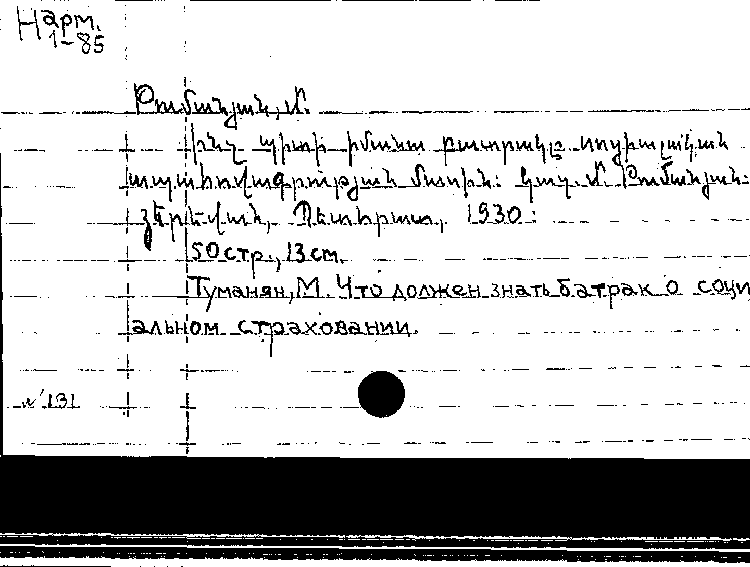 Нарм.
1-85
Թումանյան, Մ.
Ինչ պիտի իմանա բատրակը սոցիալական
ապահովագրության մասին: Կազ. Մ. Թումանյան.
Յերևան, Պետհրատ, 1930:
50 стр., 13 см.
Туманян, М. Что должен знать батрак о соци
альном страховании.
№ 131